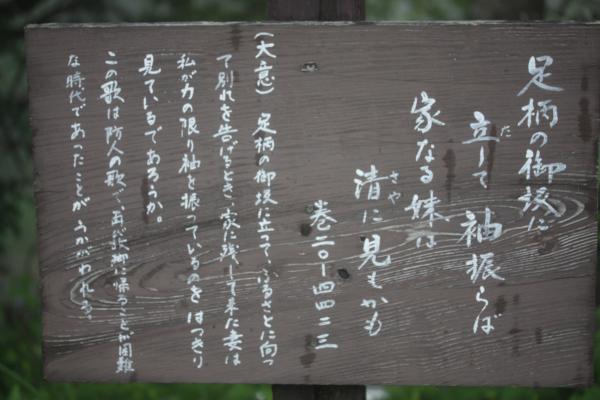 足柄の御坂に
立して 袖振らば
家なる妹は
清に見もかも
巻二〇ー四四二三
(大意) 足柄の御坂に立って、ふるさとに向っ
て別れを告げるとき、家に残して来た妻は
私が力の限り袖を振っているのをはっきり
見ているであろうか。
この歌は防人の歌で、再び故郷に帰ることが困難
な時代であったことがうかがわれる。